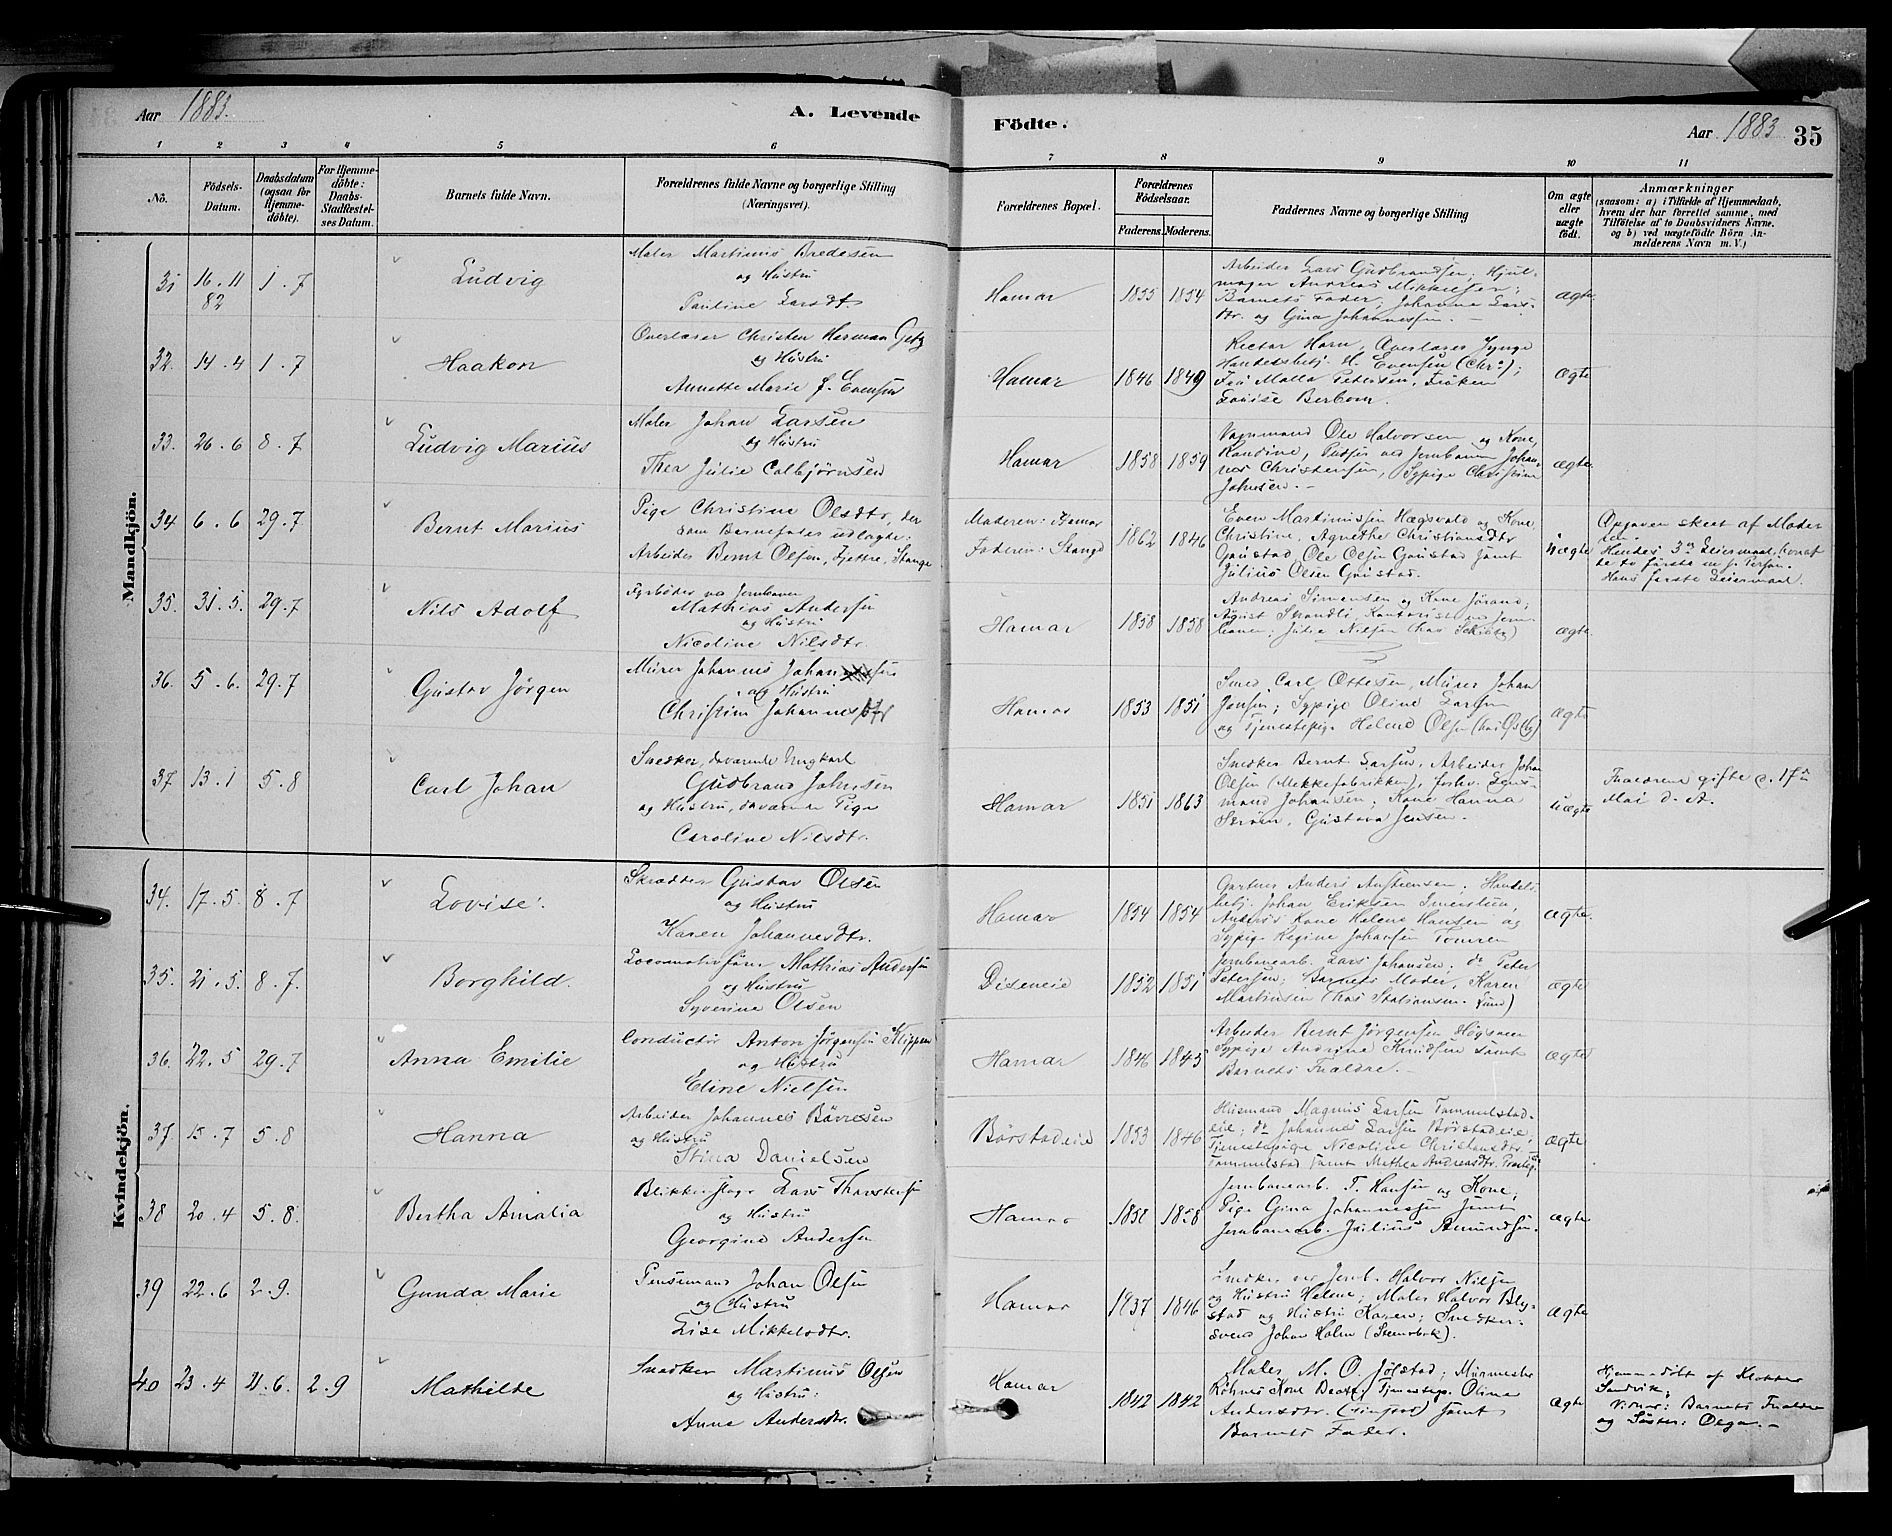 Aar 1883.
A. Levende
Födte.
Aar 1883
35
1 2 3 4 5 6 7 8 9 10 11
No.
Födsels-
Datum.
Daabsdatum
(ogsaa for
Hjemme-
döbte).
For Hjemme-
döbte:
Daabs-
Stadfæstel-
ses Datum.
Barnets fulde Navn.
Forældrenes fulde Navne og borgerlige Stilling
(Næringsvei).
Forældrenes Bopæl.
Forældrenes
Födselsaar.
Faderens. Moderens.
Faddernes Navne og borgerlige Stilling
Om ægte
eller
uægte
födt.
Anmærkninger
(saasom: a) i Tilfælde af Hjemmedaab,
hvem der har forrettet samme, med
Tilföielse af to Daabsvidners Navne.
og b) ved uægtefödte Börn An-
melderens Navn m. V.)
Mandkjön.
31 16.11 82 1.7
Ludvig
Maler Martinus Bredesen
og Hustru
Pauline Larsdt.
Hamar 1855 1854
Arbeider Lars Gudbrandsen; Hjul-
mager Andreas Mikkelsen;
Barnets Fader; Johanna Lars-
dtr. og Gina Johannessen. —
ægte
32. 14.4 1.7
Haakon
Overlærer Christen Herman Getz
og Hustru
Annette Marie f. Evensen
Hamar 1846 1849
Rector Horn, Overlærer Lynge
Handelsbetj. H. Evensen (Chr.a);
Frü Malla Petersen, Frøken
Louise Berbom.
ægte
33. 26.6 8.7
Ludvig Marius
Maler Johan Larsen
og Hustru
Thea Julie Colbjørnsen
Hamar 1858 1859
Vognmand Ole Halvorsen og Kone,
Randine, Pudser ved Jernbanen Johan-
nes Christensen, Sypige Christine
Johnsen. —
ægte
34 6.6 29.7
Bernt Marius
Pige Christine Olsdtr, der
som Barnefader udlagte:
Arbeider Bernt Olsen, Gjettre, Stange
Moderen: Hamar
Faderen: Stange
1862 1846
Even Martinussen Hægsvold og Kone
Christine, Agnethe Christiansdtr
Gaustad, Ole Olsen Gaustad samt
Julius Olsen Gaustad.
uægte
Opgaven skeet af Mode-
ren.
Hendes 3die Leiermaal, hvoraf
de to første m. s. Person.
Hans første Leiermaal.
35. 31.5. 29.7
Nils Adolf
Fyrbøder va Jernbanen
Mathias Andersen
og Hustru
Nicoline Nilsdtr.
Hamar 1858 1858
Andreas Simensen og Kone Jørand;
August Strandli, Kontorist va Jern-
banen; Julie Nilsen (hos Schiøtz)
ægte.
36. 5.6. 29.7
Gustav Jørgen
Murer Johannes Johansen
og Hustru
Christine Johannesdtr
Hamar 1853 1851
Smed Carl Ottesen, Murer Johan
Jensen; Sypige Oline Larsen
og Tjenestepige Helene Olsen (hos Østby)
ægte
37 13.1 5.8
Carl Johan
Snedker, daværende Ungkarl
Gudbrand Johnsen
og Hustru, daværen Pige
Caroline Nilsdtr.
Hamar 1851 1863
Snedker Bernt Larsen, Arbeider Johan
Olsen (Mekkefabrikken), forhv. Lens-
mand Johansen; Kone Hanna
Strøm, Gustava Jensen.
uægte
Forældrene gifte d. 17de
Mai d. A.
Kvindekjön.
34. 17.5. 8.7
Lovise.
Skrædder Gustav Olsen
og Hustru
Karen Johannesdtr.
Hamar 1854 1854
Gartner Anders Austiensen; Handels-
betj. Johan Eriksen
Anders Kone Helene Hansen og
Sypige Regine Johansen
ægte.
35. 21.5. 8.7.
Borghild.
Locomotivfører Mathias Andersen
og Hustru
Syverine Olsen
Diseneie 1852 1851
Jernbanearb. Lars Johansen; do Peter
Petersen; Barnets Moder, Karen
Martinsen (hos Stationsm. Lund)
ægte
36. 22.5 29.7
Anna Emilie
Conductør Anton Jørgensen Klippen
og Hustru
Eline Nielsen
Hamar 1846 1845
Arbeider Bernt Jørgensen Høgsveen
Sypige Andrine Knudsen samt
Barnets Forældre. —
ægte
37 15.7 5.8
Hanna
Arbeider Johannes Bävresen
og Hustru
Stina Danielsen
Börstadeie 1853 1846
Husmand Magnus Larsen Tommelstad-
eie; do Johannes Larsen Börstadeie;
Tjenestepige Nicoline Christiansdtr.
Tommelstad samt Mathea Andreasdtr.
ægte
38 20.4 5.8.
Bertha Amalia
Blikkenslager Lars Thorstensen
og Hustru
Georgine Andersen
Hamar 1858 1858
Jernbanearb. T. Hansen og Kone;
Pige Gina Johannessen samt
Jernbanearb. Julius Amundsen.
ægte
39 22.6 2.9.
Gunda Marie
Pensemand Johan Olsen
og Hustru
Lise Mikkelsdtr.
Hamar 1837 1846
Snedker ver Jernb. Halvor Nilsen
og Hustru Helene; Maler Halvor Bly-
stad og Hustru Karen; Snedker-
svend Johan Holm (Stensbak).
ægte
40 23.4 21.6. 2.9
Mathilde
Snedker Martinus Olsen
og Hustru:
Anne Andersdtr.
Hamar 1842 1842
Maler M. O. Jölstad; Murmester
Röhnes Kone Dorthe; Tjenestep. Oline
Andersdtr. samt
Barnets Fader.
ægte
Hjemmedöbt af Klokker
Sandvik;
Vidner: Barnets Forældre
og Søster: Olga. —